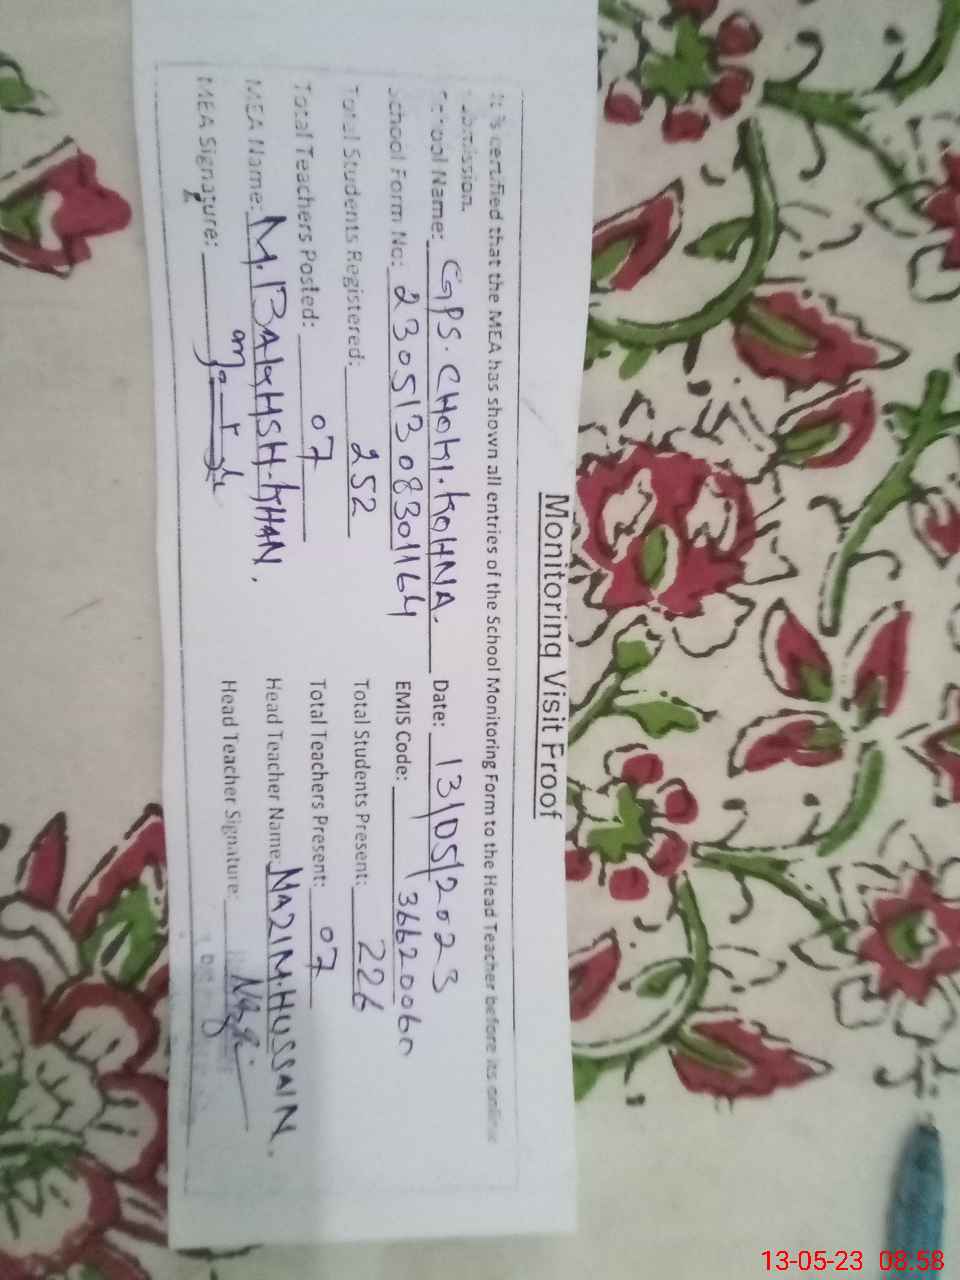 Monitoring Visit Proof
It is certified that the MEA has shown all entries of the School Monitoring Form to the Head Teacher before its online
submission.
School Name: GPS. CHOKI. KOHNA. Date: 13/05/2023
School Form No: 23051308301164 EMIS Code: 36620060
Total Students Registered: 252 Total Students Present: 226
Total Teachers Posted: 07 Total Teachers Present: 07
MEA Name: M. BAKHSH. KHAN. Head Teacher Name: NAZIM. HUSSAIN.
MEA Signature: Head Teacher Signature:
13-05-23 08:58